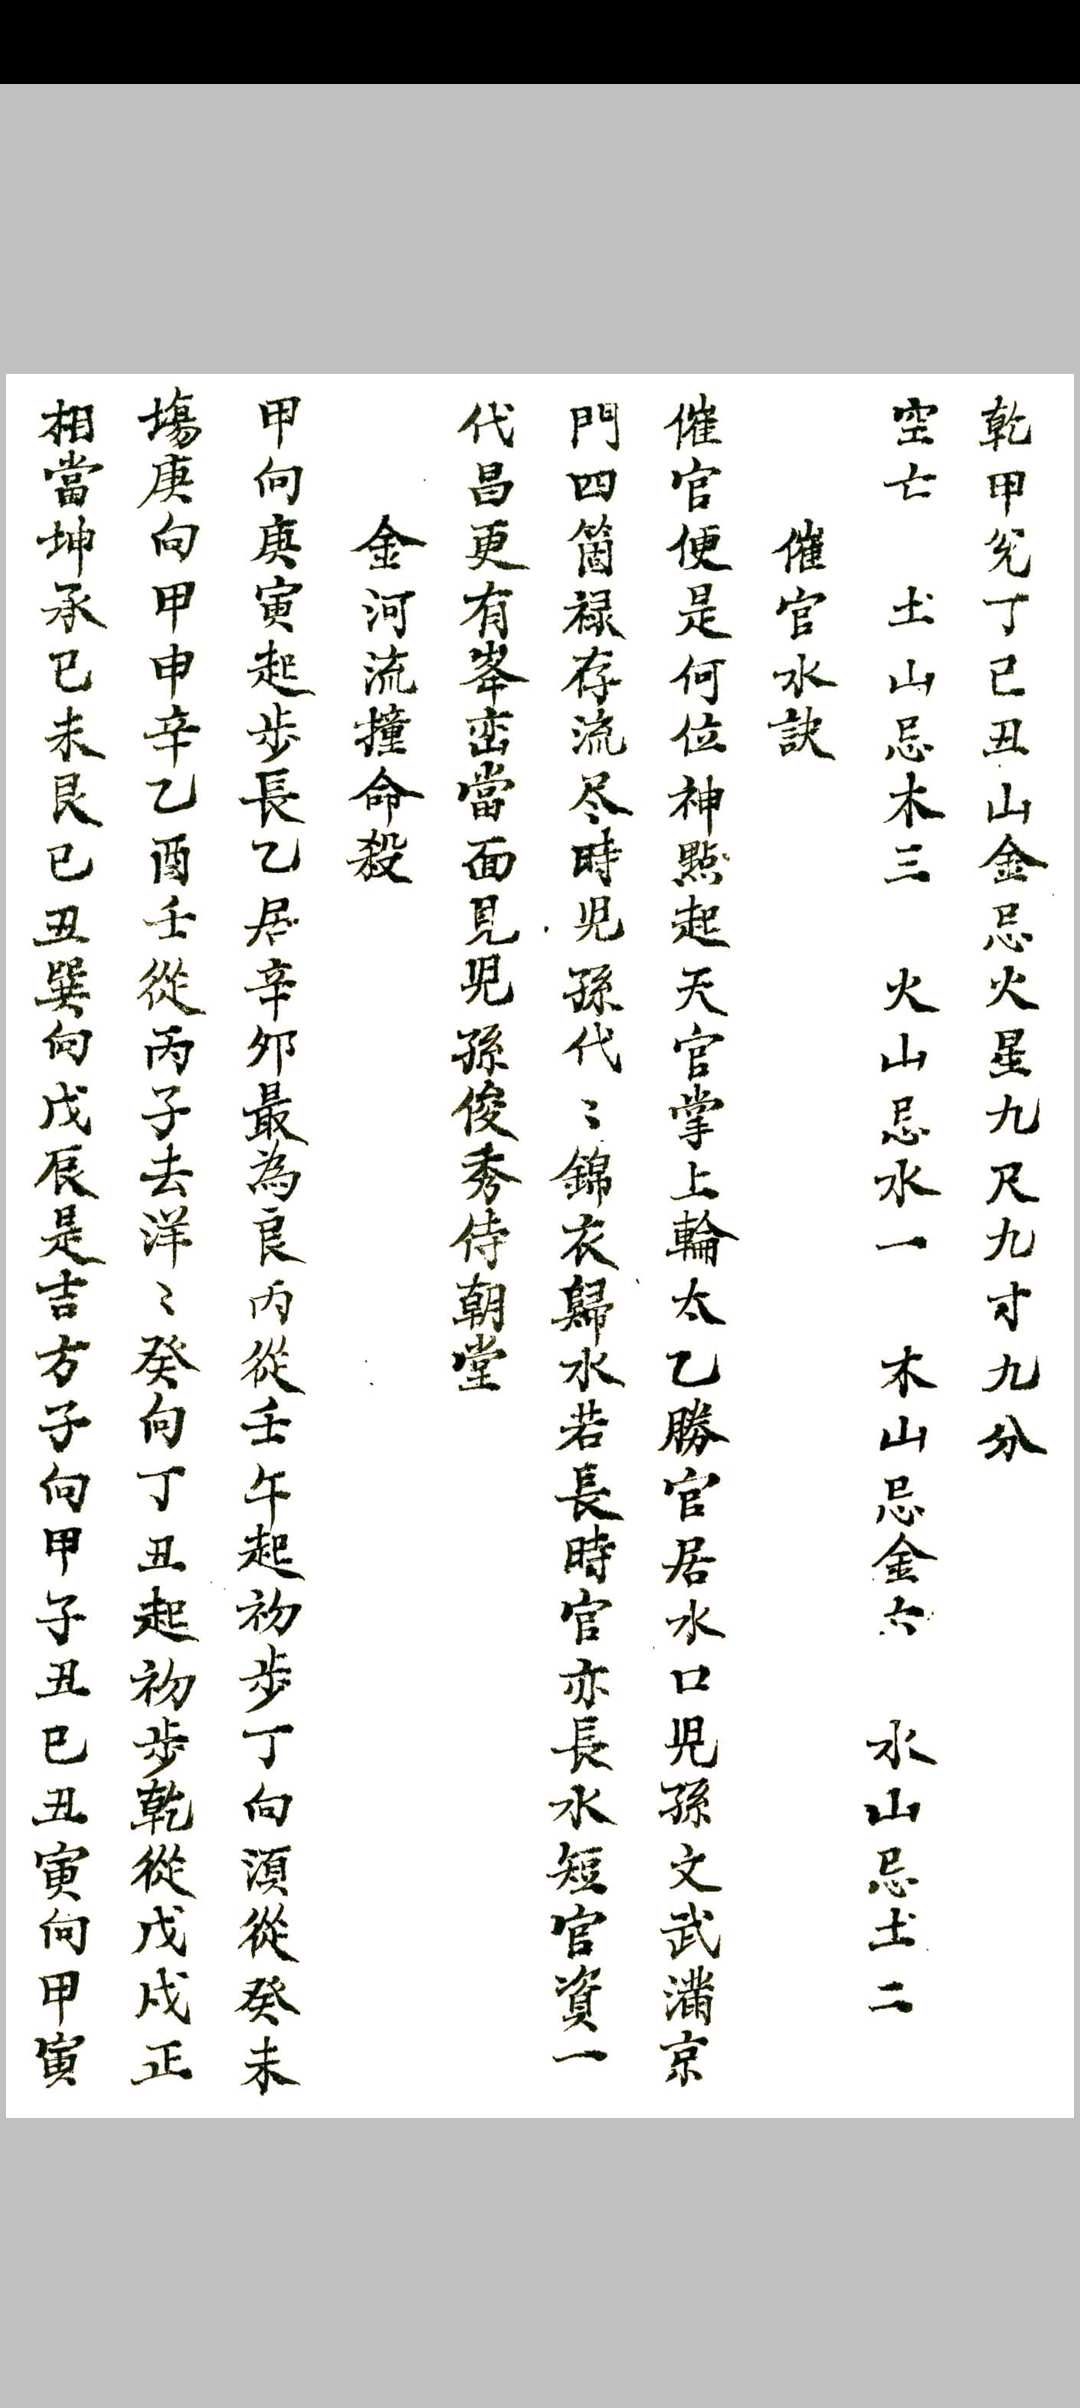 乾甲兊丁巳丑山金忌火星九尺九寸九分
空亡　土山忌木三　火山忌水一　木山忌金六　水山忌土二
催官水訣
催官便是何位神點起天官掌上輪太乙勝官居水口児孫文武滿京
門四箇禄存流尽時児孫代〻錦衣歸水若長時官亦長水短官資一
代昌更有峯峦當面見児孫俊秀侍朝堂
金河流撞命殺
甲向庚寅起步長乙居辛夘最為良丙從壬午起初步丁向湏從癸未
塲庚向甲申辛乙酉壬從丙子去洋〻癸向丁丑起初步乾從戊戌正
相當坤承已未艮已丑巽向戊辰是吉方子向甲子丑巳丑寅向甲寅